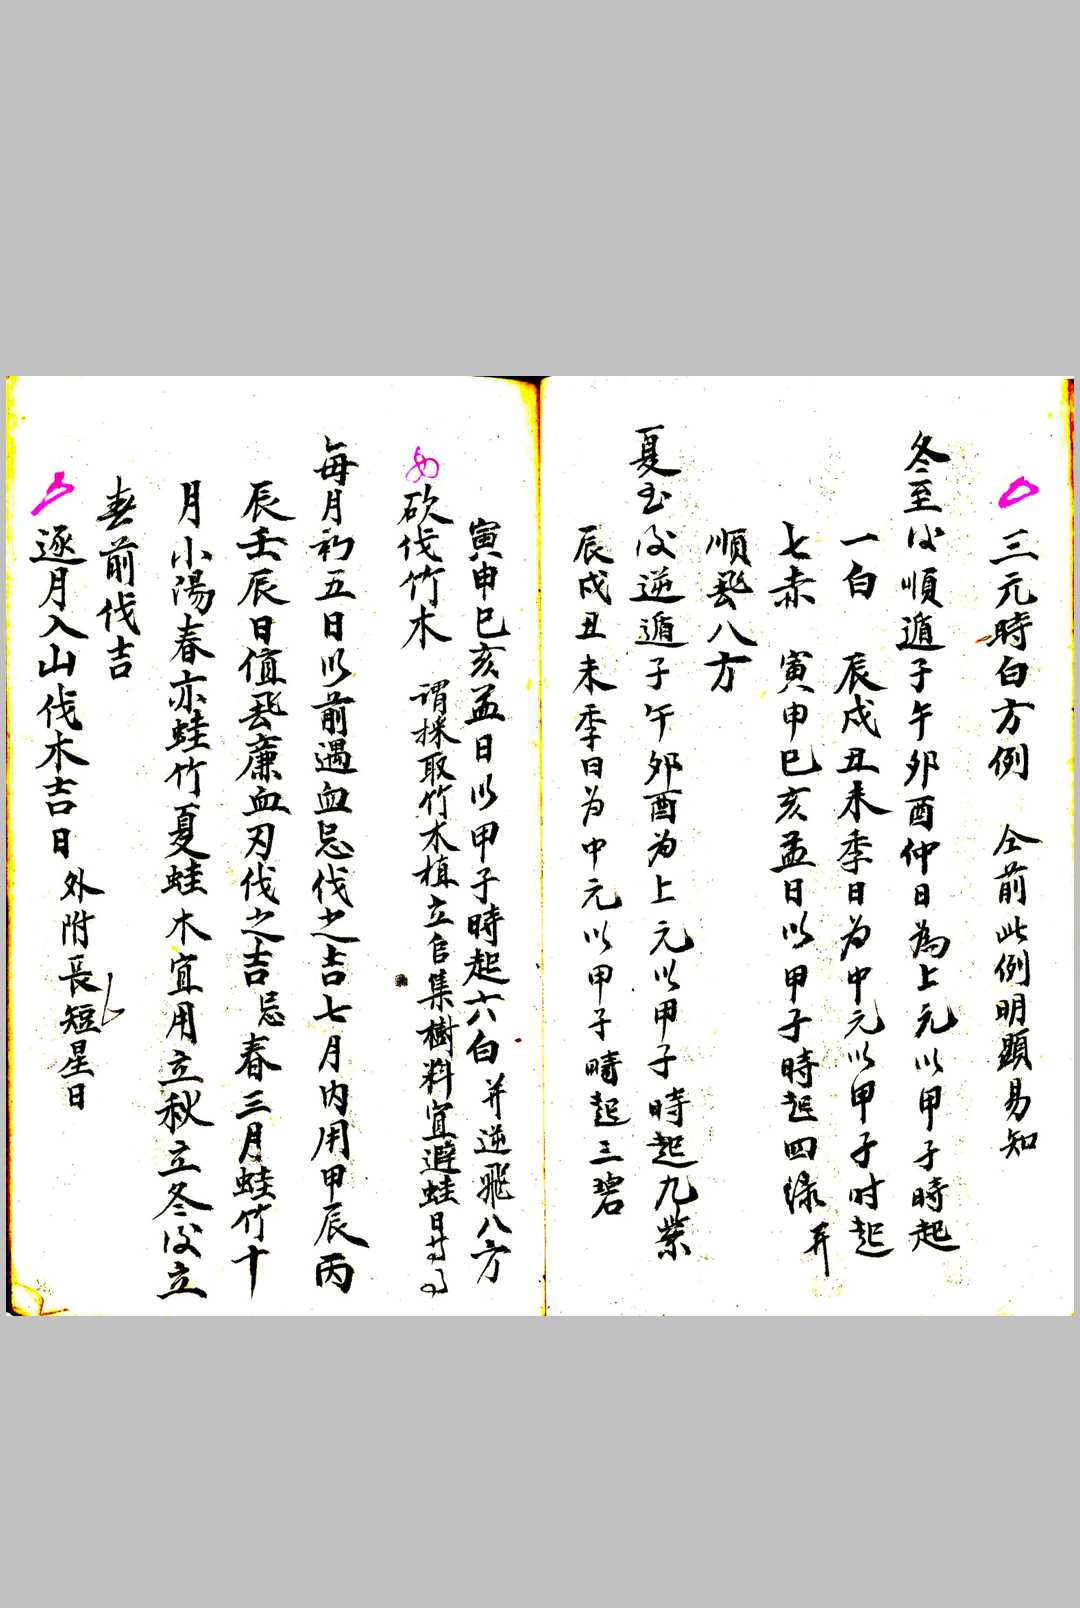 三元時白方例 仝前此例明顕易知
冬至后順遁子午卯酉仲日為上元以甲子時起
一白 辰戌丑未季日为中元以甲子时起
七赤 寅申巳亥孟日以甲子時起四绿 并
順飛八方
夏至后逆遁子午卯酉为上元以甲子時起九紫
辰戌丑未季日为中元以甲子時起三碧
寅申巳亥孟日以甲子時起六白 并逆飛八方
砍伐竹木 謂採取竹木植立倉集樹料宜避蛀日
每月初五日以前遇血忌伐之吉七月內用甲辰丙
辰壬辰日值飛廉血刃伐之吉忌春三月蛀竹十
月小陽春亦蛀竹夏蛀木宜用立秋立冬后立
春前伐吉
逐月入山伐木吉日 外附長短星日